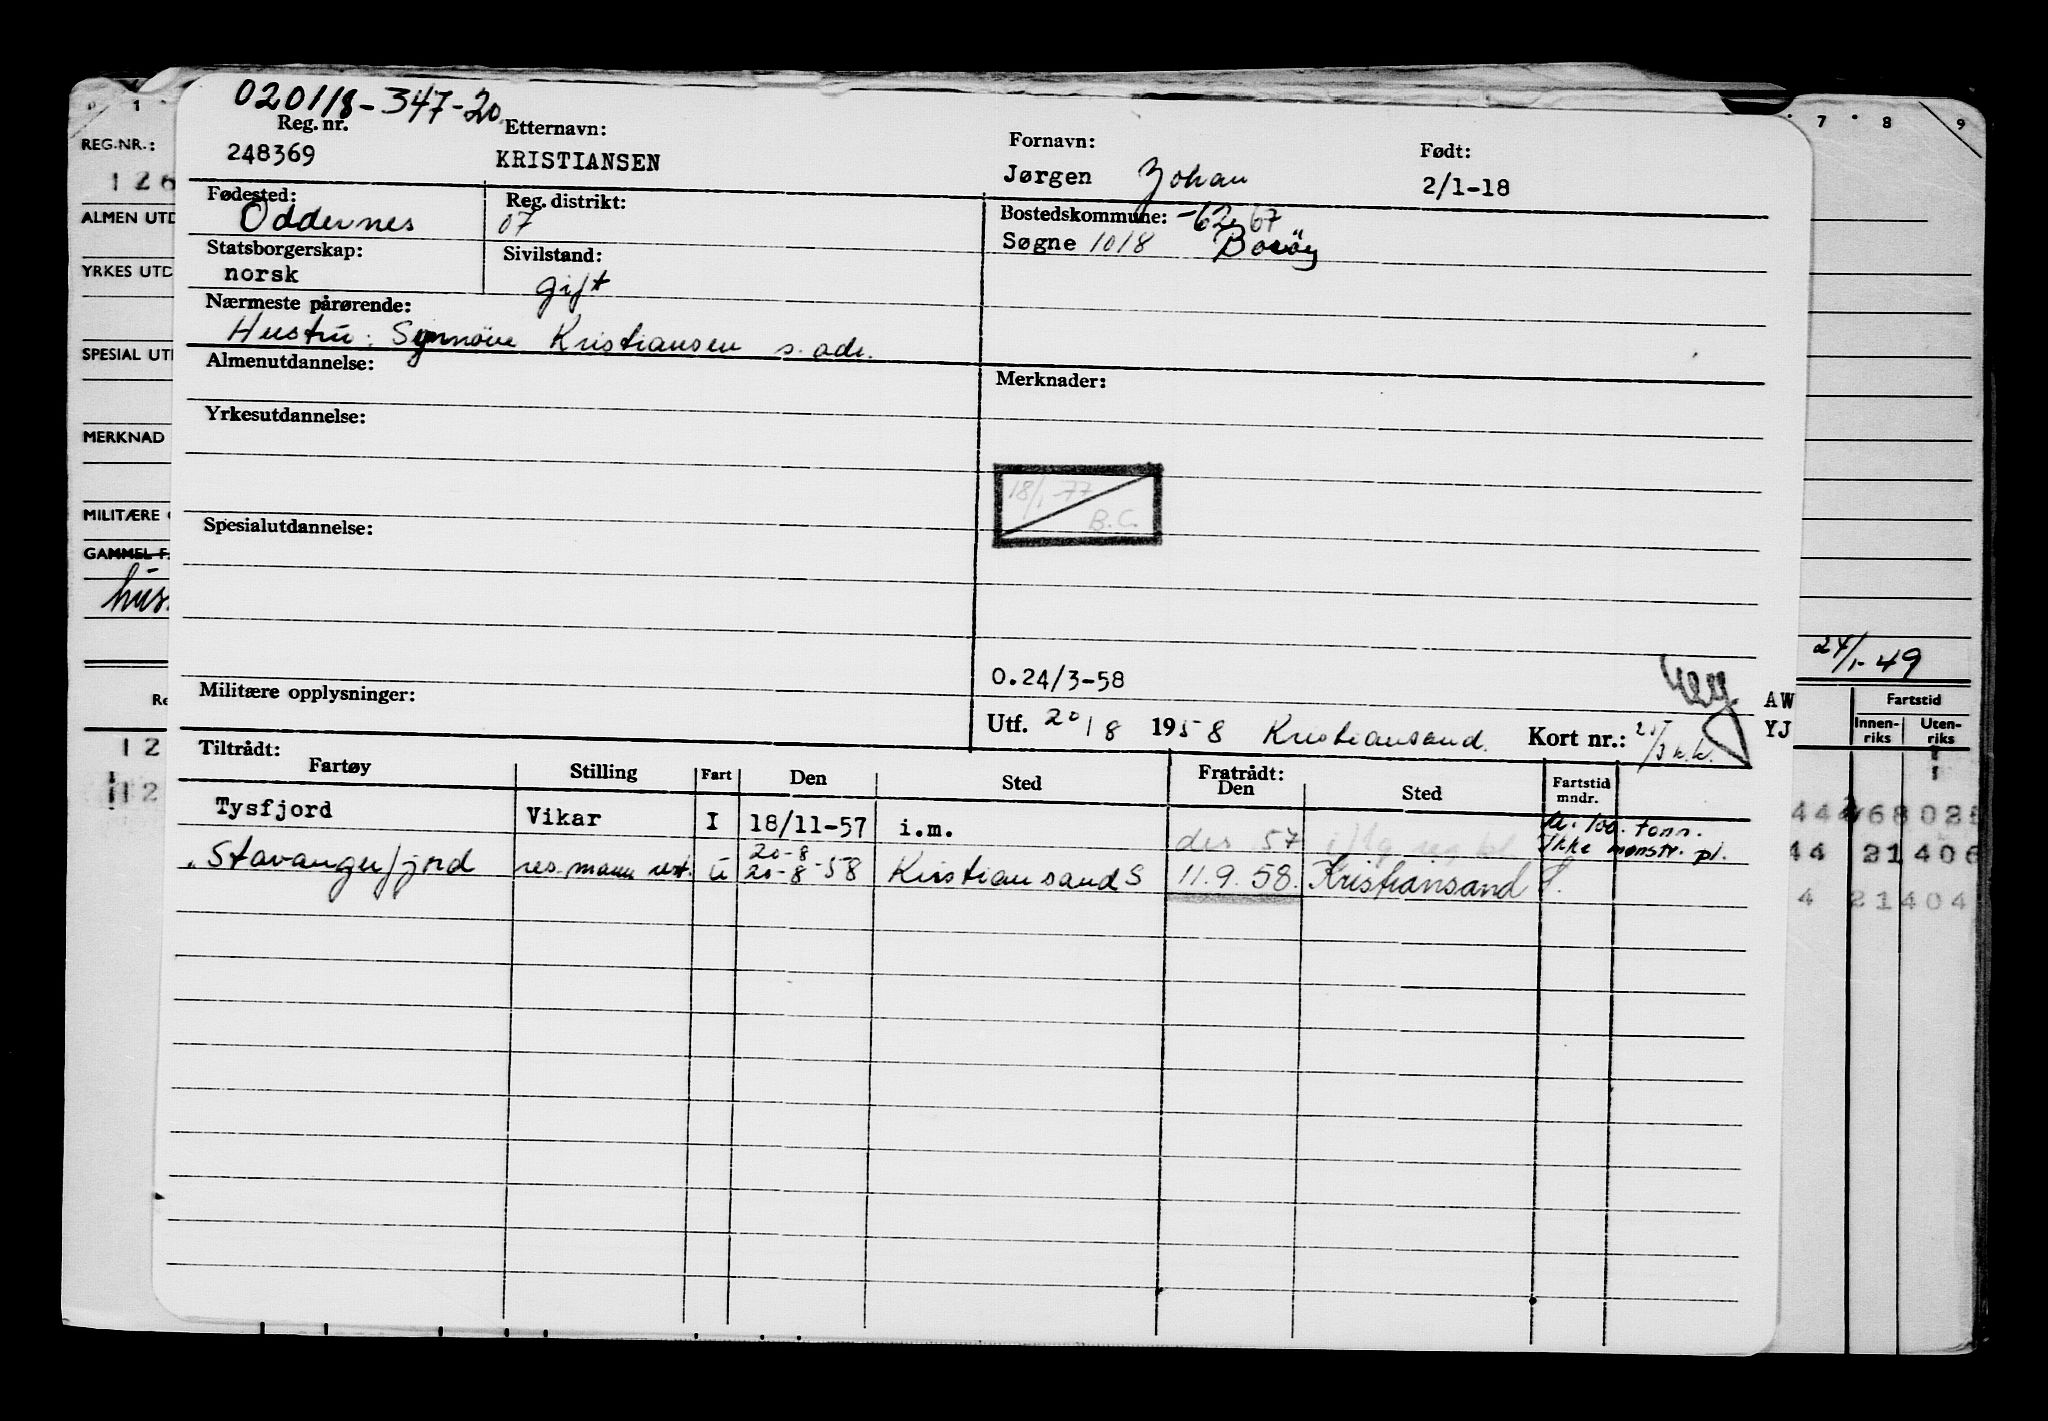 020118-347-20
Reg. nr. Etternavn: Fornavn: Født:
248369 KRISTIANSEN Jørgen Johan 2/1-18
Fødested: Reg. distrikt: Bostedskommune: -62, 67
Oddernes 07 Søgne 1018
Statsborgerskap: Sivilstand:
norsk gift
Nærmeste pårørende:
Hustru: Synnöve Kristiansen s. adr.
Almenutdannelse: Merknader:
Yrkesutdannelse:
18/1-77
B.C.
Spesialutdannelse:
O.24/3-58
Militære opplysninger:
Utf. 20/8 1958 Kristiansand. Kort nr.:
Tiltrådt: Fratrådt:
Fartøy Stilling Fart Den Sted Den Sted Fartstid mndr.
Tysfjord Vikar I 18/11-57 i.m. des 57 u. 100. tonn.
Ikke mønstr. pl.
20-8
Stavangerfjord res. mann rest. U 20-8-58 Kristiansand S 11.9.58. Kristiansand S.
0 1
REG.NR.:
126
ALMEN UTD
YRKES UTD
SPESIAL UTD
MERKNAD
MILITÆRE
GAMMEL F.
Re
12
12
7 8 9
24/1-49
AW
YJ
Fartstid
Innen-riks Uten-riks
44 21406
4 21404